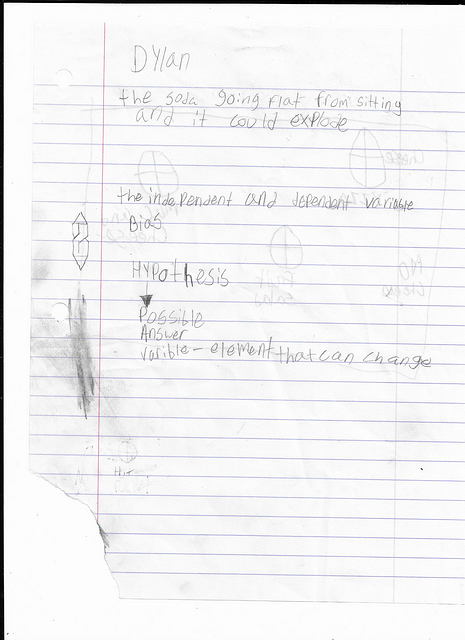 DYlan
the soda going flat from sitting
and it could explode
the independent and dependent variable
Bias
HYPothesis
Possible
Answer
varible - element that can change